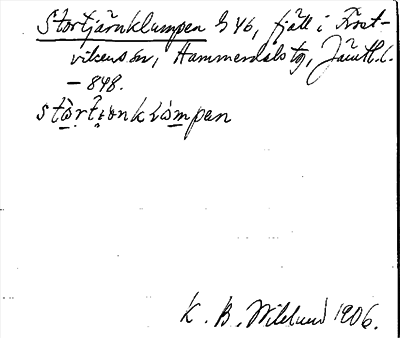 Stortjärnklumpen G 46, fjäll i Frost-
vikens sn, Hammerdals tg, Jämtl. l.
— 848.
stòrtionklòmpen
K. B. Wiklund 1906.